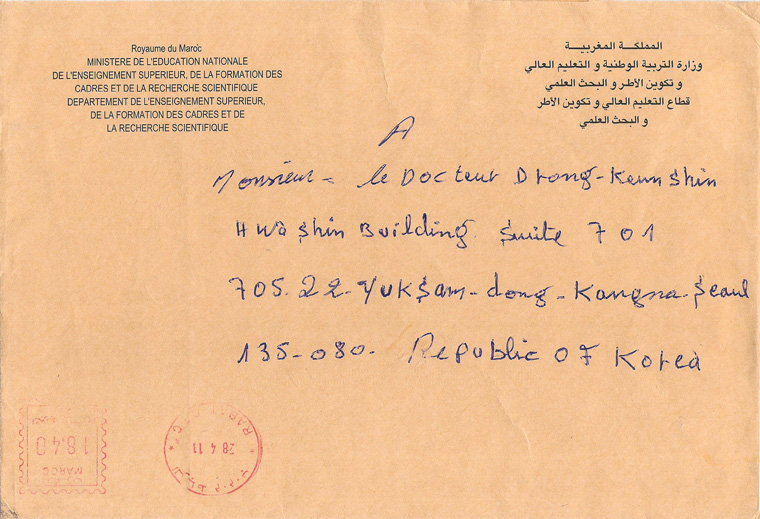 Royaume du Maroc
MINISTERE DE L'EDUCATION NATIONALE
DE L'ENSEIGNEMENT SUPERIEUR, DE LA FORMATION DES
CADRES ET DE LA RECHERCHE SCIENTIFIQUE
DEPARTEMENT DE L'ENSEIGNEMENT SUPERIEUR,
DE LA FORMATION DES CADRES ET DE
LA RECHERCHE SCIENTIFIQUE
المملكة المغربية
وزارة التربية الوطنية و التعليم العالي
و تكوين الأطر و البحث العلمي
قطاع التعليم العالي و تكوين الأطر
و البحث العلمي
A
Monsieur - le Docteur Drong-Keun Shin
HWa Shin Building Suite 701
705.22-YukSam-dong-Kangna-Seoul
135-080- Republic OF Korea
18.40
MAROC
28 4 11